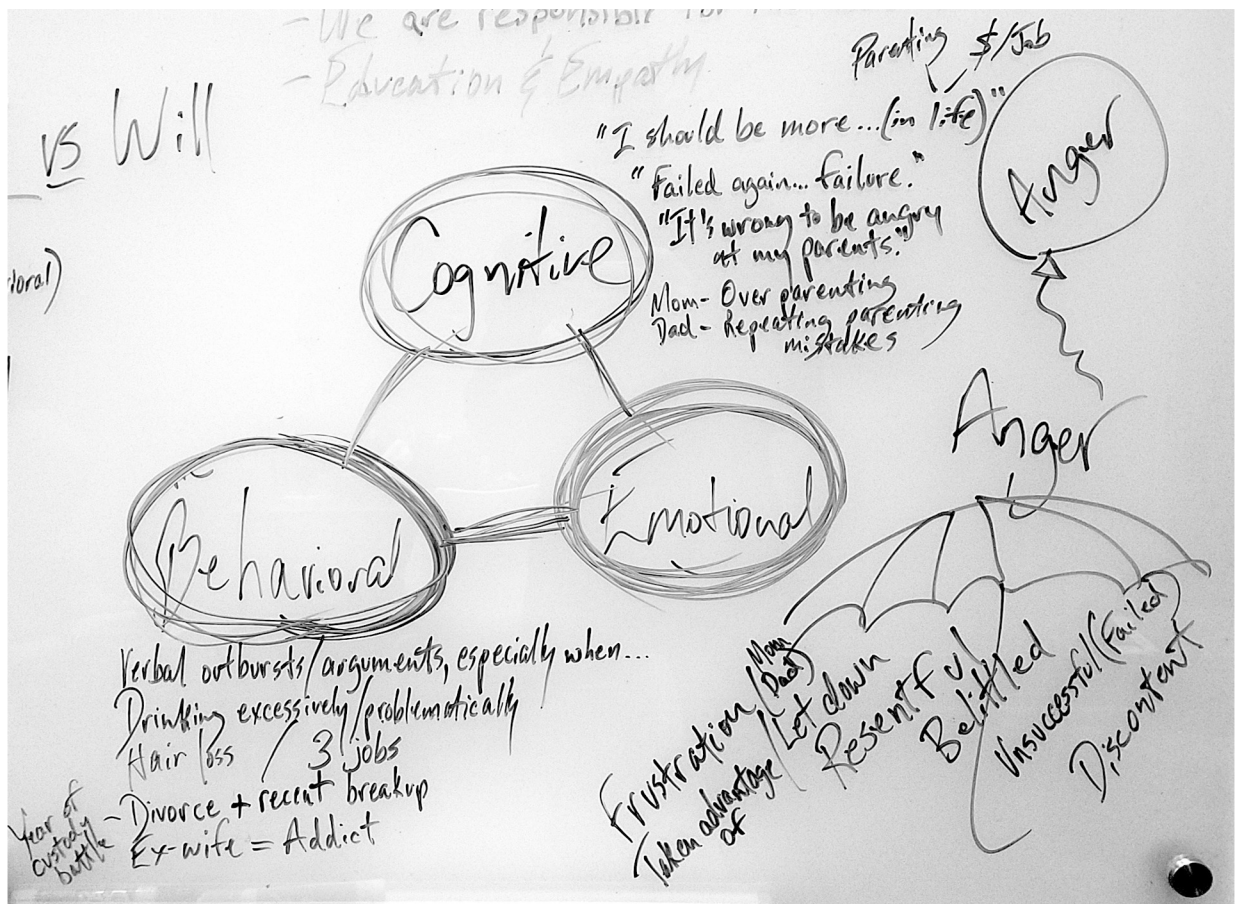 - We are responsible for
- Education & Empathy
vs Will
Parenting $/Job
"I should be more...(in life)"
"Failed again... failure."
"It's wrong to be angry
at my parents."
Mom - Over parenting
Dad - Repeating parenting
mistakes
Anger
Cognitive
Anger
Behavioral
Emotional
Verbal outbursts/arguments, especially when...
Drinking excessively/problematically
Hair loss / 3 jobs
- Divorce + recent breakup
Ex-wife = Addict
Year of
custody
battle
Frustration (Mom
Dad)
Taken advantage
of
/Let down
Resentful
Belittled
Unsuccessful (Failed)
Discontent